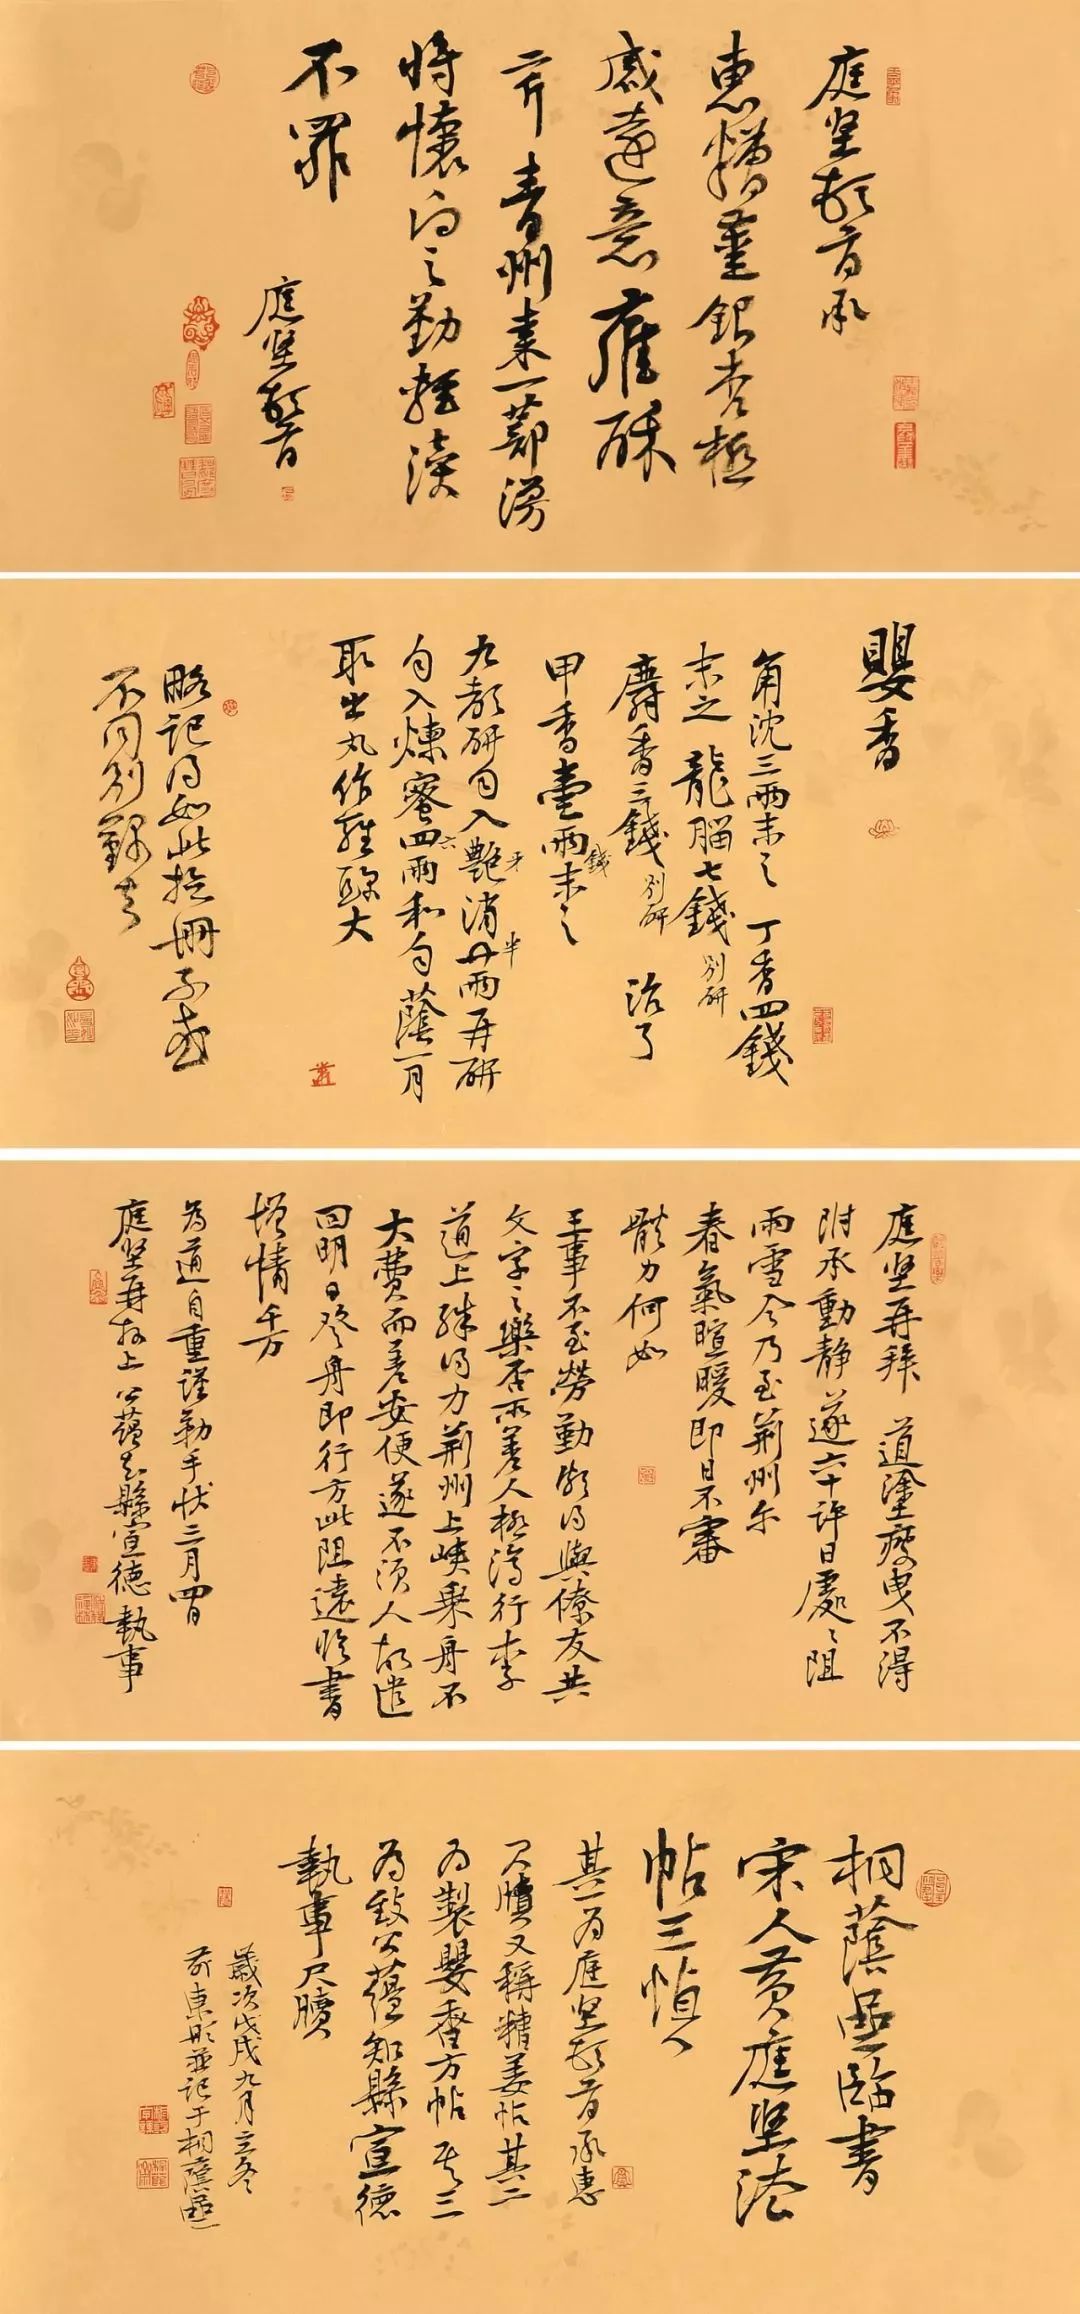 庭坚頓首承
惠糟薑銀杏極
感遠意雍酥
二斤青州棗一蔀漫
將懷向之勤輕瀆
不罪
庭坚頓首
嬰香
角沈三兩末之丁香四錢
末之龍腦七錢別研
麝香三錢別研治了
甲香壹兩末之
錢
右都研勻入艷消半兩再研
牙半
勻入煉蜜四兩和勻蔭一月
六
取出丸作雞頭大
略記得如此捡冊子或
不同別錄去
庭坚再拜道塗疲曳不得
附承動静遂六十許日處〻阻
雨雪今乃至荊州尔
春氣暄暖即日不審
體力何如
王事不至勞勤頗得與僚友共
文字之樂否所差人極濟行李
道上殊得力荊州上峽乘舟不
大費而差安便遂不須人故遣
回明日登舟即行方此阻遠臨書
增情千万
為道自重謹勒手狀三月四日
庭坚再拜上公蘊知縣宣德執事
桐蔭區臨書
宋人黄庭坚法
帖三幀
其一为庭坚頓首承惠
尺牘又稱糟姜帖其二
为製嬰香方帖其三
為致公蘊知縣宣德
執事尺牘
歲次戊戌九月立冬
前東彤並記于桐蔭區